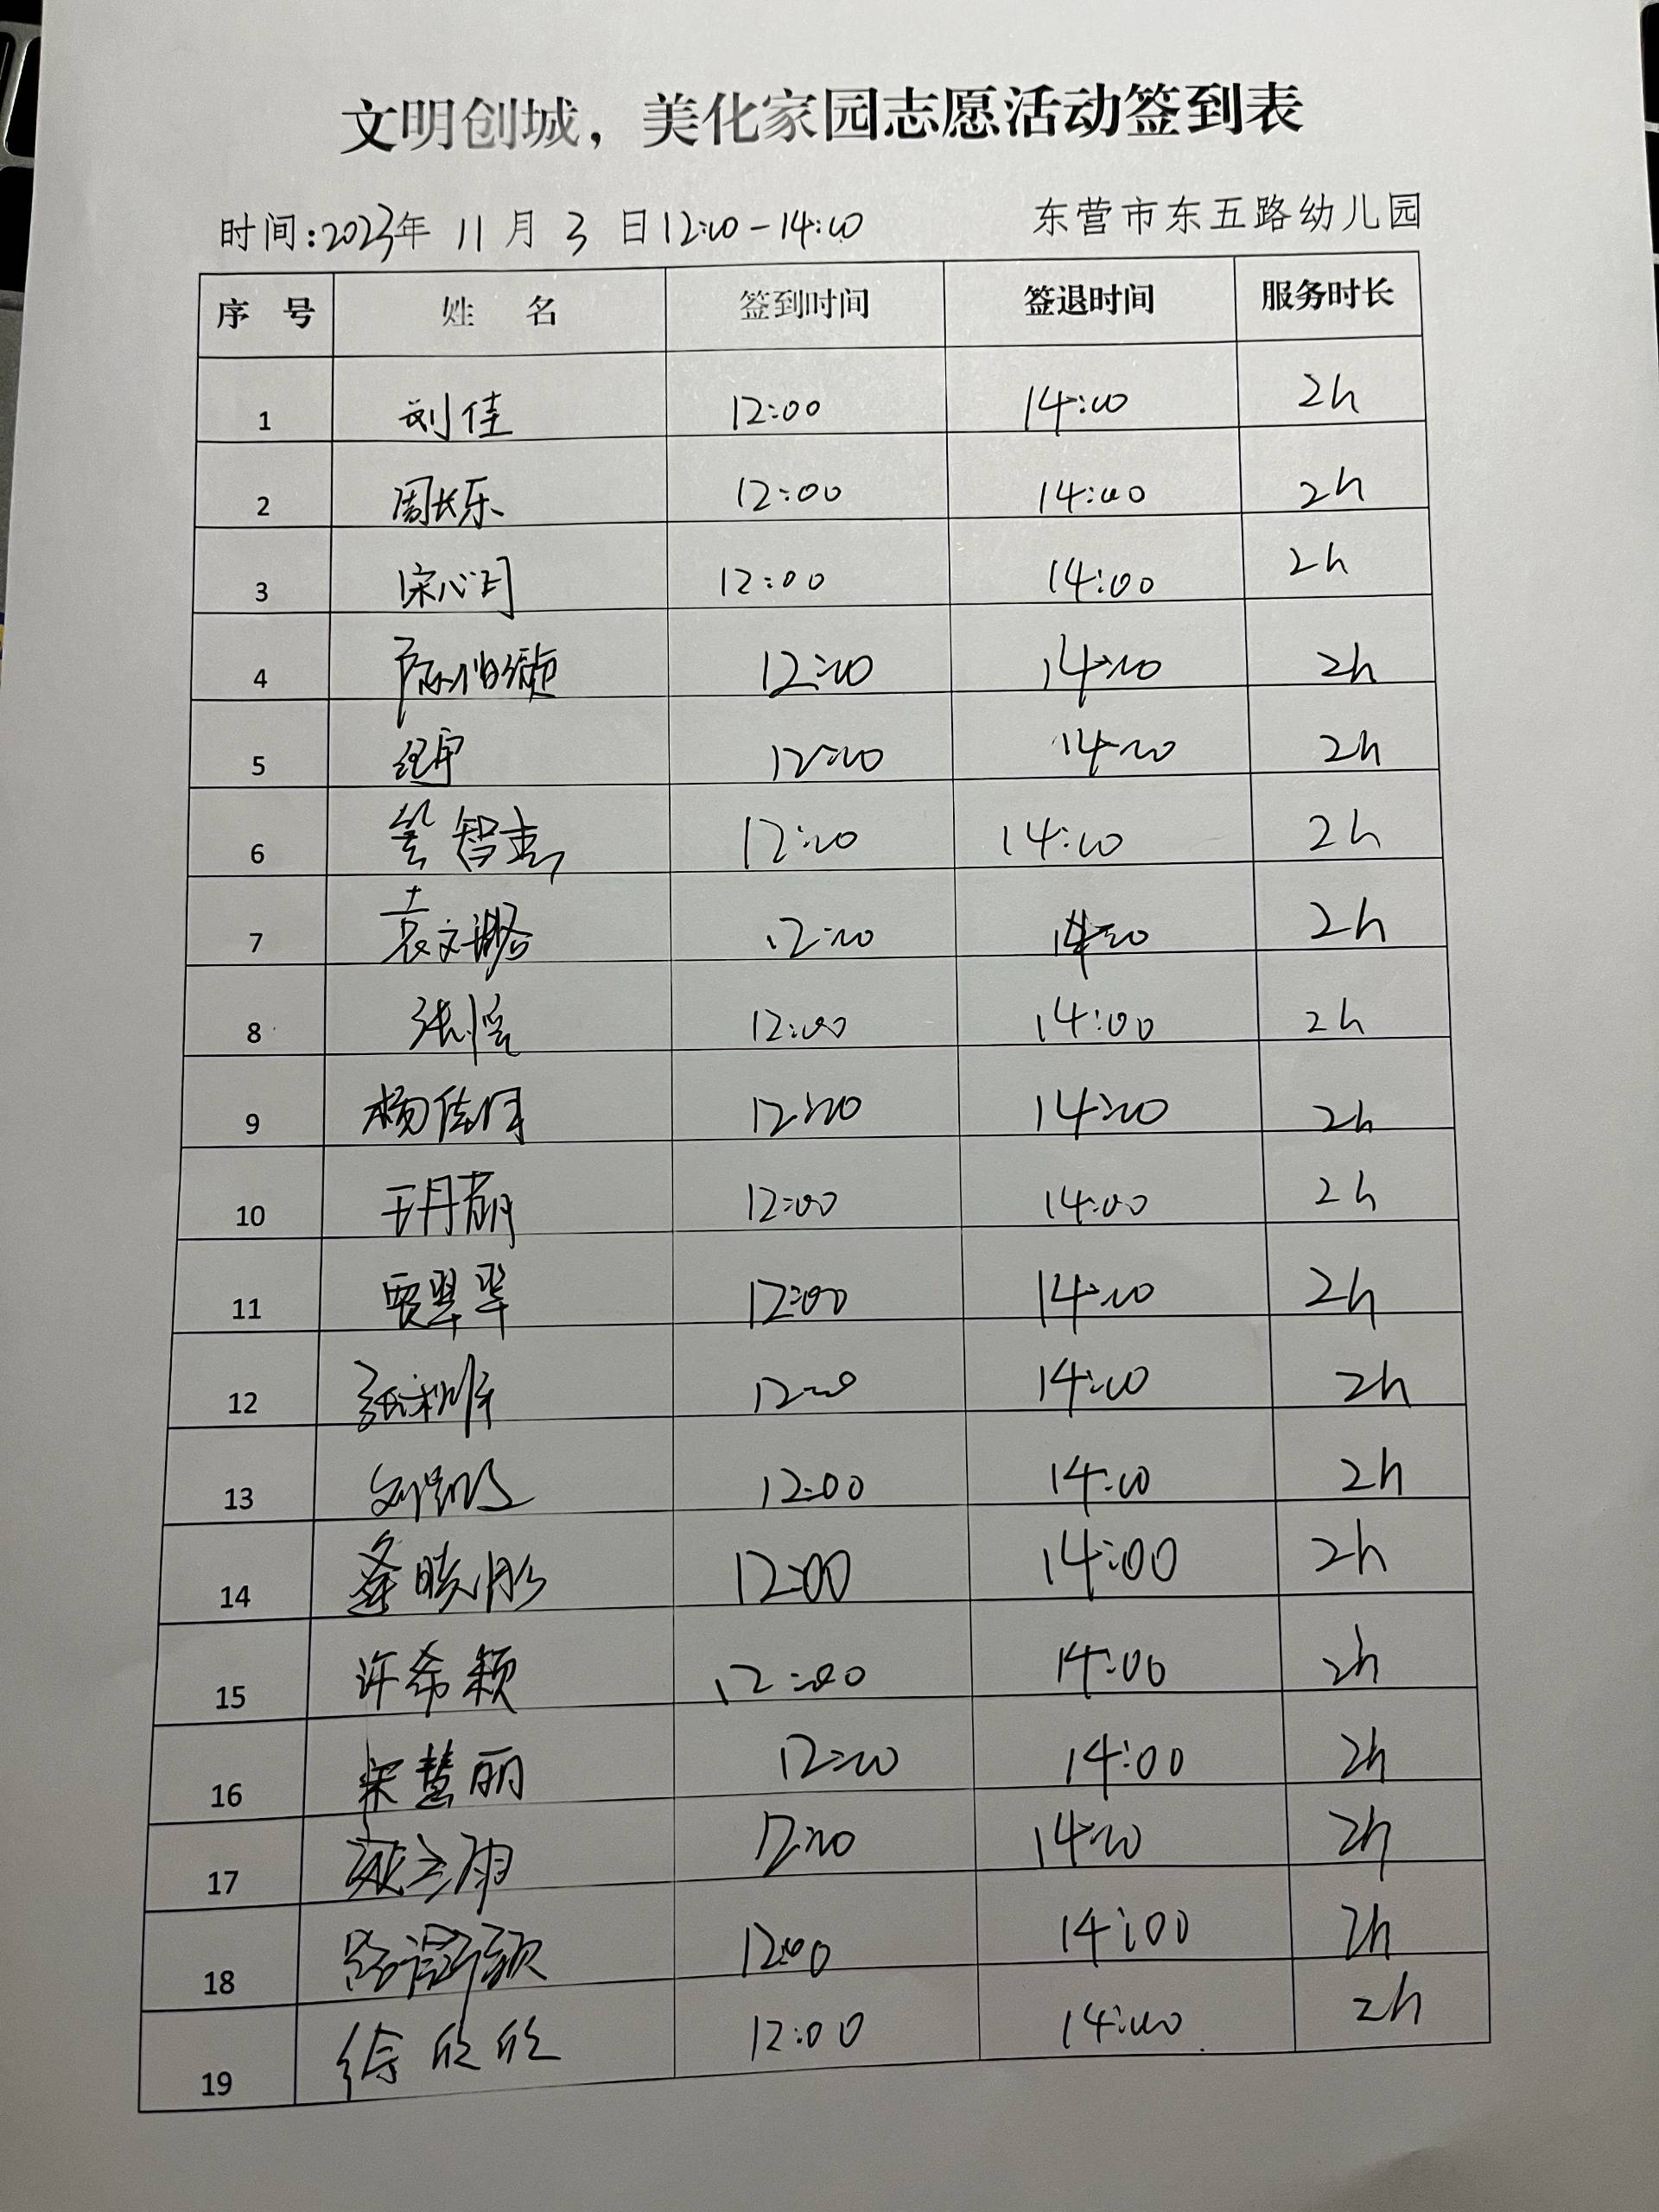 文明创城，美化家园志愿活动签到表
时间:2023年 11 月 3 日12:00-14:00 东营市东五路幼儿园
序 号 姓 名 签到时间 签退时间 服务时长
1 刘佳 12:00 14:00 2h
2 周长乐 12:00 14:00 2h
3 宋心月 12:00 14:00 2h
4 12:00 14:00 2h
5 12:00 14:00 2h
6 綦智杰 12:00 14:00 2h
7 袁文璐 12:00 14:00 2h
8 张悦 12:00 14:00 2h
9 杨佳 12:00 14:00 2h
10 王丹萌 12:00 14:00 2h
11 贾翠翠 12:00 14:00 2h
12 张 12:00 14:00 2h
13 刘 12:00 14:00 2h
14 晓彤 12:00 14:00 2h
15 许希颖 12:00 14:00 2h
16 宋慧丽 12:00 14:00 2h
17 雨 12:00 14:00 2h
18 路 12:00 14:00 2h
19 徐欣欣 12:00 14:00 2h